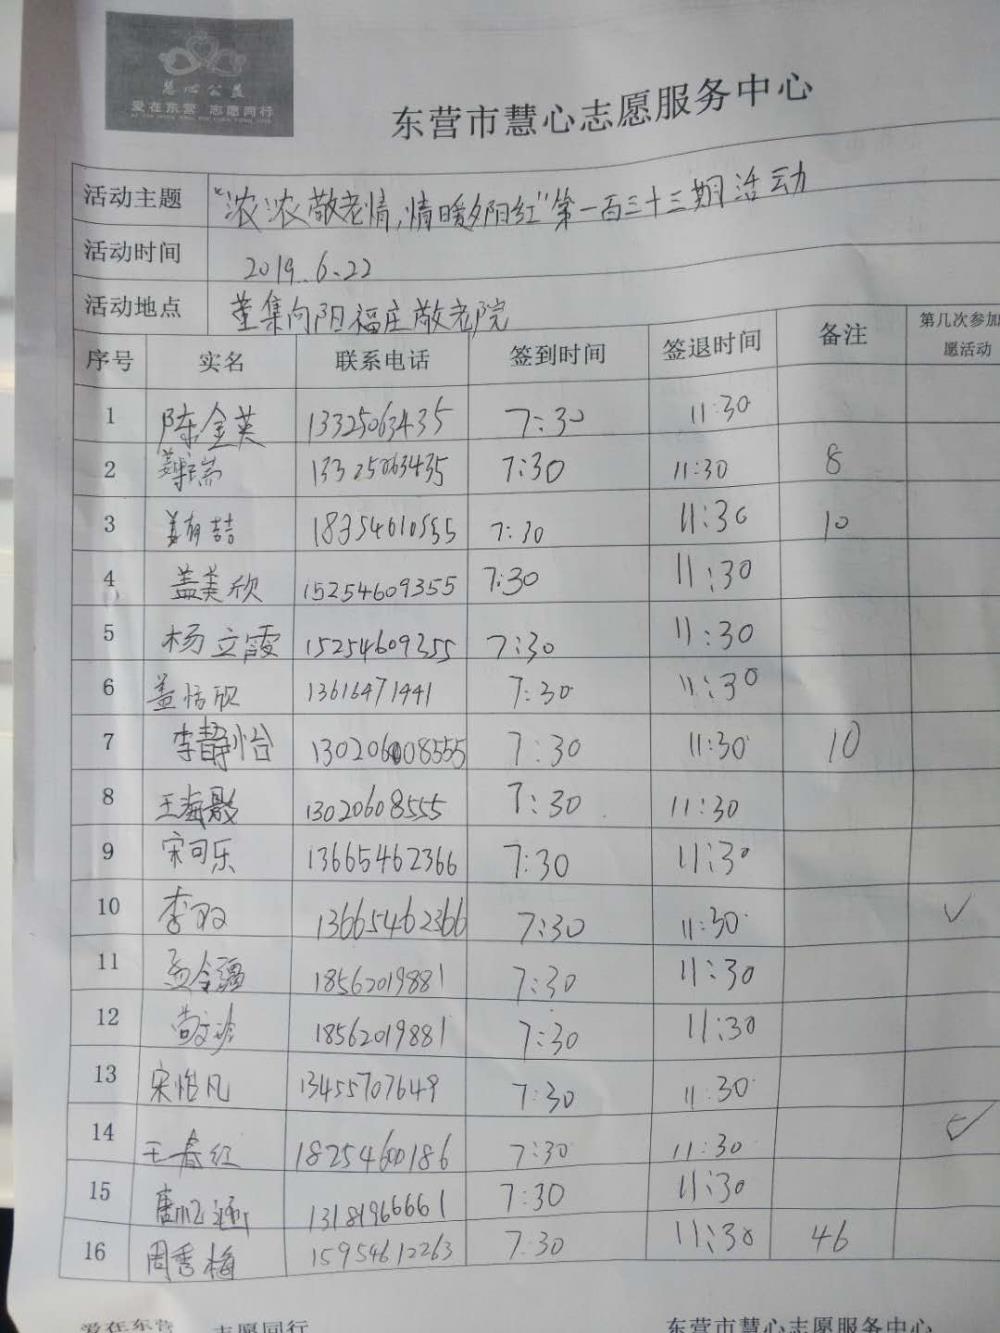 慧心公益
爱在东营 志愿同行
东营市慧心志愿服务中心
活动主题 “浓浓敬老情,情暖夕阳红”第一百三十三期活动
活动时间 2019.6.22
活动地点 董集向阳福庄敬老院
序号 实名 联系电话 签到时间 签退时间 备注 第几次参加
愿活动
1 陈金英 13325063435 7:30 11:30
2 13325063435 7:30 11:30 8
3 姜有喆 18354610555 7:30 11:30 10
4 盖美欣 15254609355 7:30 11:30
5 杨立霞 15254609355 7:30 11:30
6 盖恬欣 13616471441 7:30 11:30
7 李静怡 130206008555 7:30 11:30 10
8 王海 13020608555 7:30 11:30
9 宋可乐 13665462366 7:30 11:30
10 李双 13665462366 7:30 11:30 ✓
11 孟令 18562019881 7:30 11:30
12 18562019881 7:30 11:30
13 宋怡凡 13455707649 7:30 11:30
14 王春红 18254600186 7:30 11:30 ✓
15 唐 涵 13181966661 7:30 11:30
16 周秀梅 15954612263 7:30 11:30 46
爱在东营 志愿同行 东营市慧心志愿服务中心